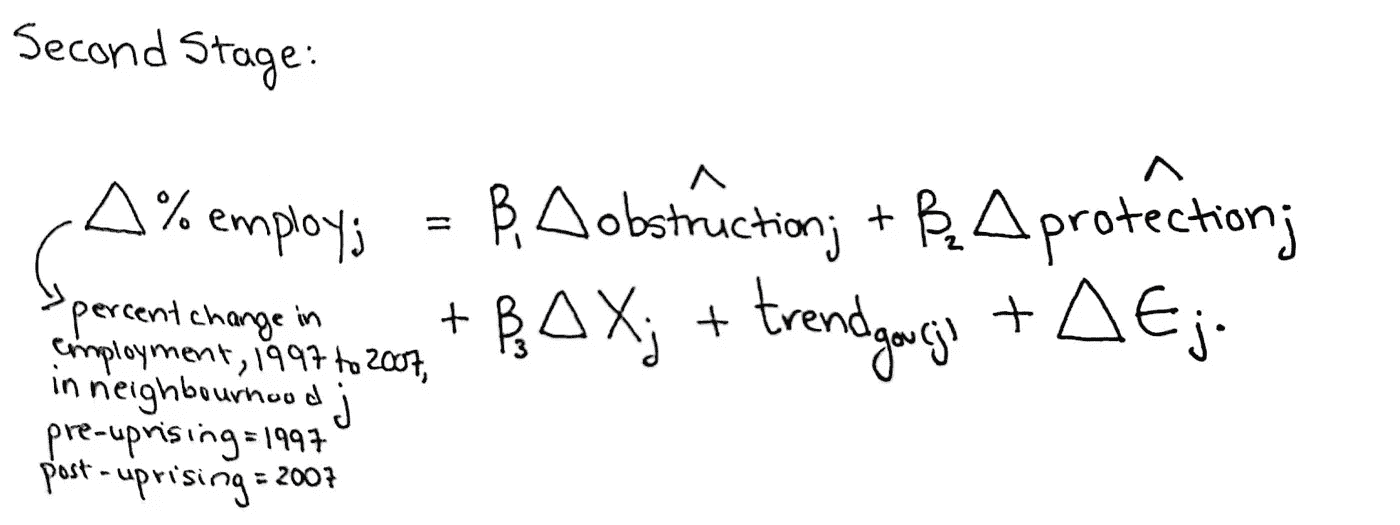 Second Stage:
Δ % employj = β₁ Δ obstruction̂j + β₂ Δ protection̂j
+ β₃ Δ Xj + trendgov(j) + Δ Єj.
percent change in
employment, 1997 to 2007,
in neighbourhood j
pre-uprising = 1997
post-uprising = 2007